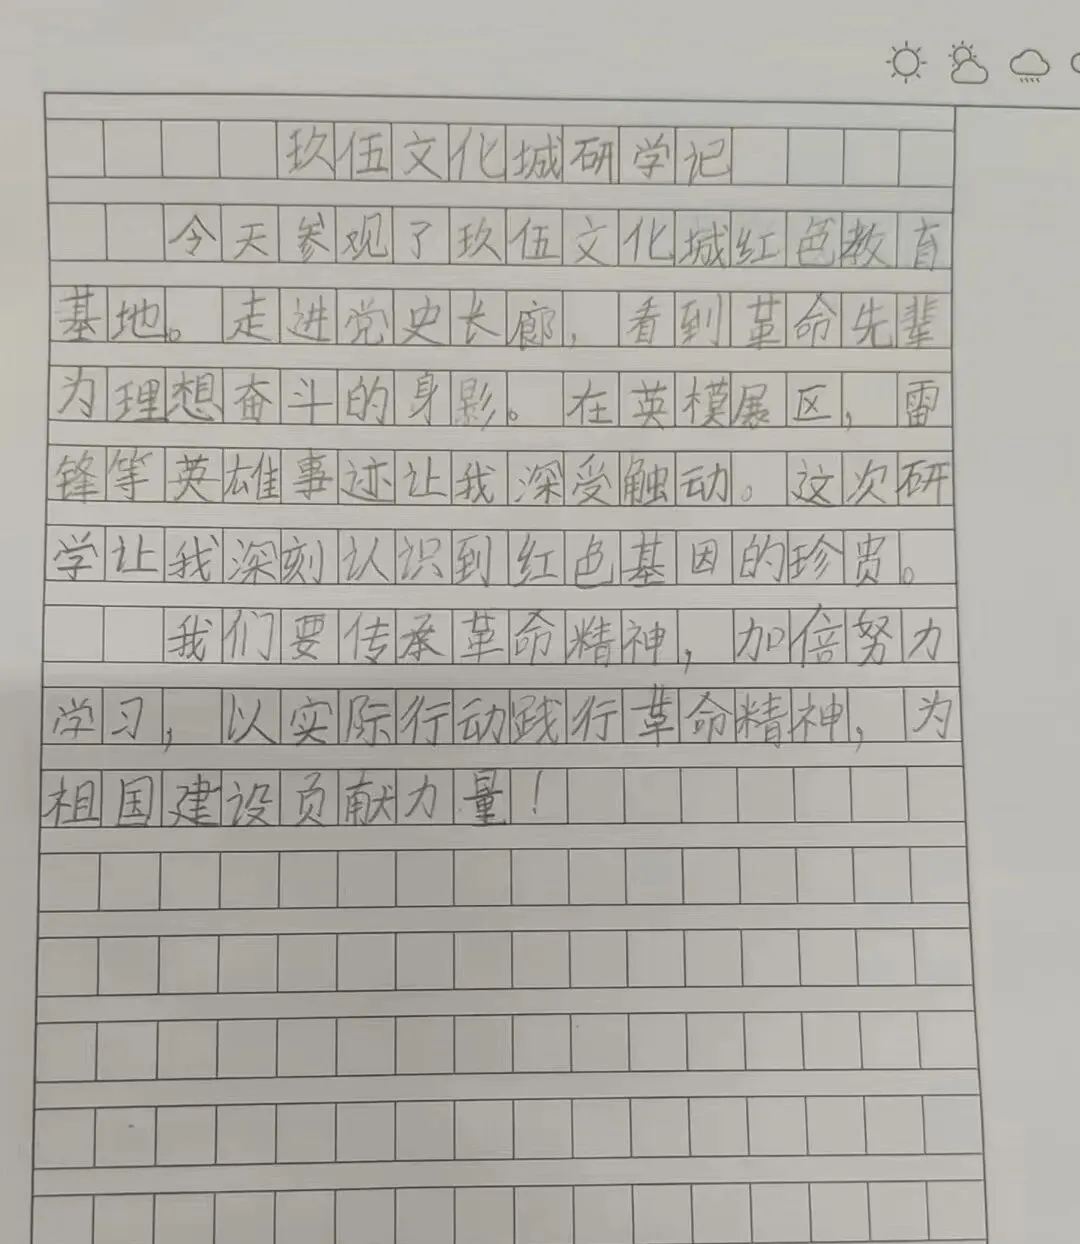 玖伍文化城研学记
今天参观了玖伍文化城红色教育
基地。走进党史长廊，看到革命先辈
为理想奋斗的身影。在英模展区，雷
锋等英雄事迹让我深受触动。这次研
学让我深刻认识到红色基因的珍贵。
我们要传承革命精神，加倍努力
学习，以实际行动践行革命精神，为
祖国建设贡献力量！